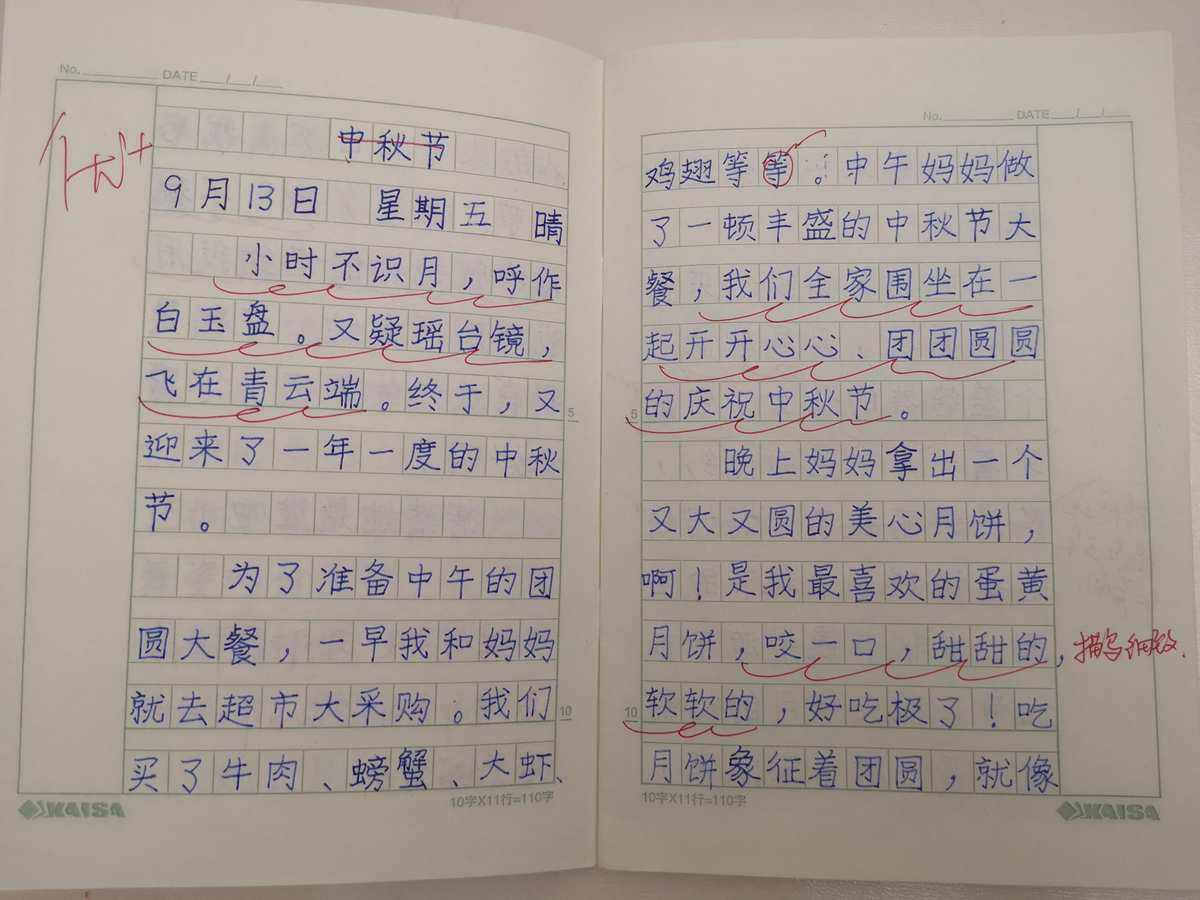 No. DATE / /
中秋节
9月13日 星期五 晴
小时不识月，呼作
白玉盘。又疑瑶台镜，
飞在青云端。终于，又
迎来了一年一度的中秋
节。
为了准备中午的团
圆大餐，一早我和妈妈
就去超市大采购。我们
买了牛肉、螃蟹、大虾、
5
10
KAISA
10字X11行=110字
No. DATE / /
鸡翅等等。中午妈妈做
了一顿丰盛的中秋节大
餐，我们全家围坐在一
起开开心心、团团圆圆
的庆祝中秋节。
晚上妈妈拿出一个
又大又圆的美心月饼，
啊！是我最喜欢的蛋黄
月饼，咬一口，甜甜的，
描写细致.
软软的，好吃极了！吃
月饼象征着团圆，就像
5
10
10字X11行=110字
KAISA